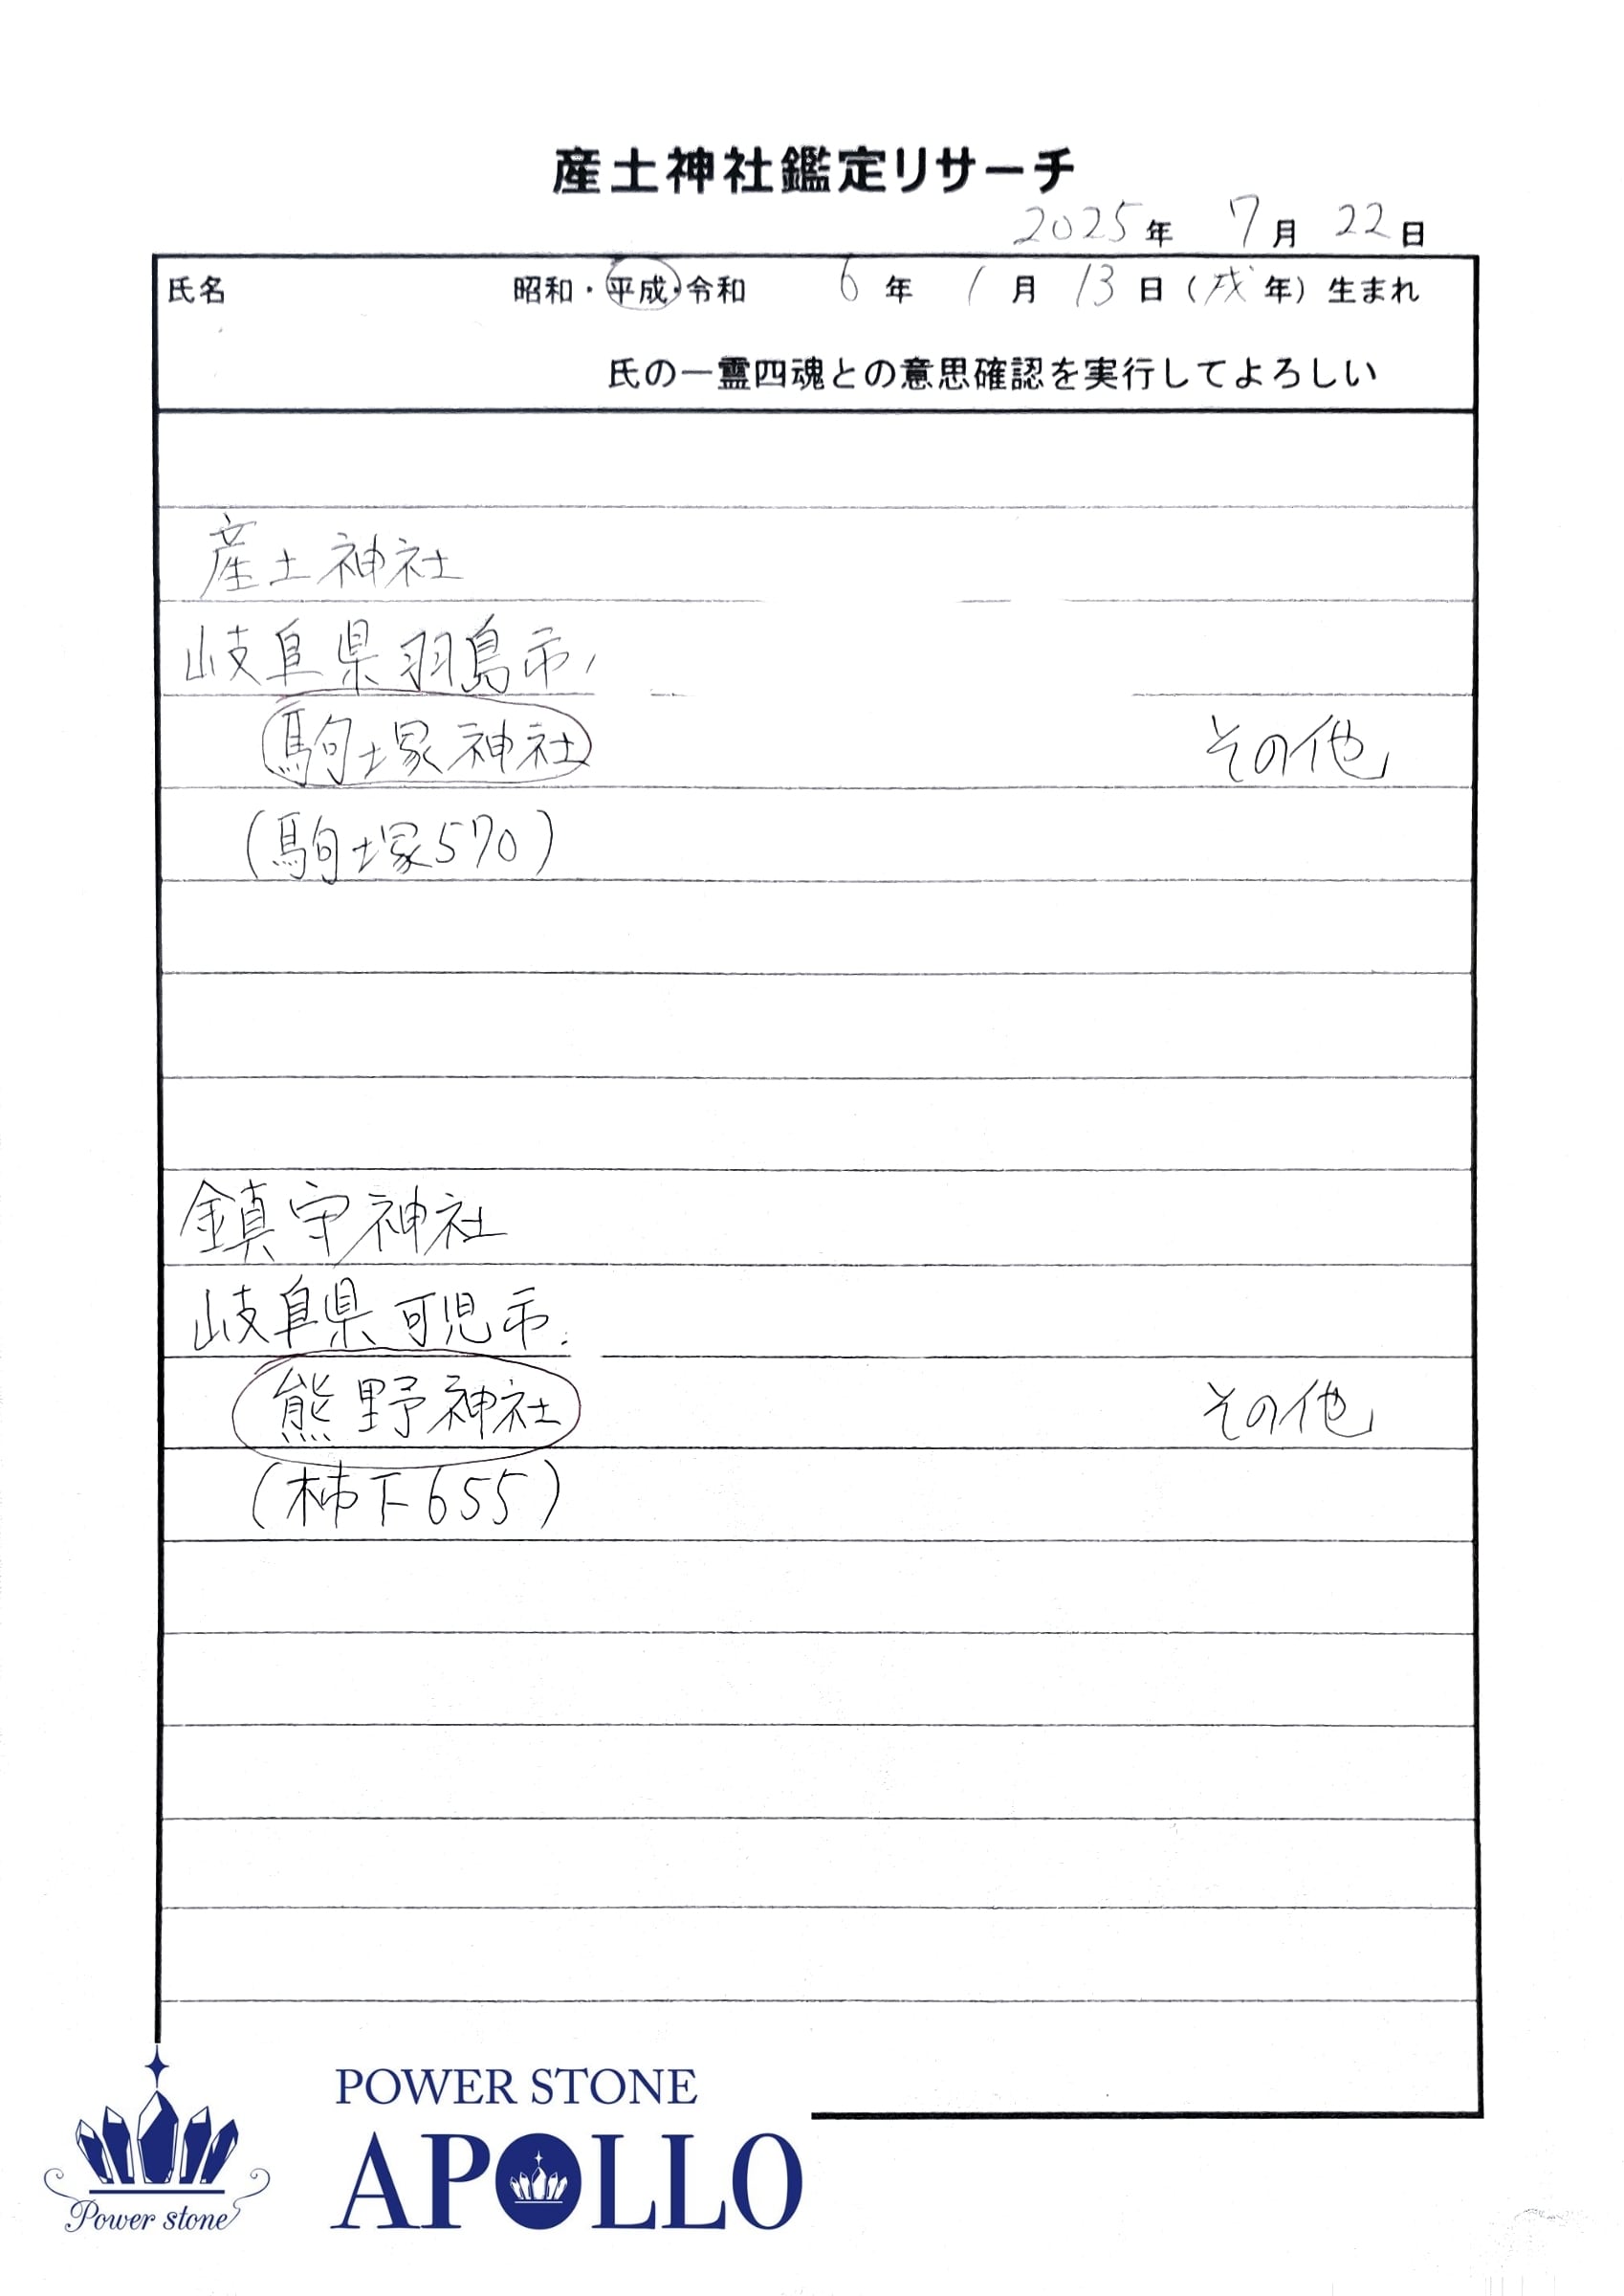 産土神社鑑定リサーチ
2025年 7月 22日
氏名 昭和・平成・令和 6年 1月 13日(戌年)生まれ
氏の一霊四魂との意思確認を実行してよろしい
産土神社
岐阜県羽島市
駒塚神社 その他
(駒塚570)
鎮守神社
岐阜県可児市
熊野神社 その他
(柿下655)
POWER STONE
APOLLO
Power stone